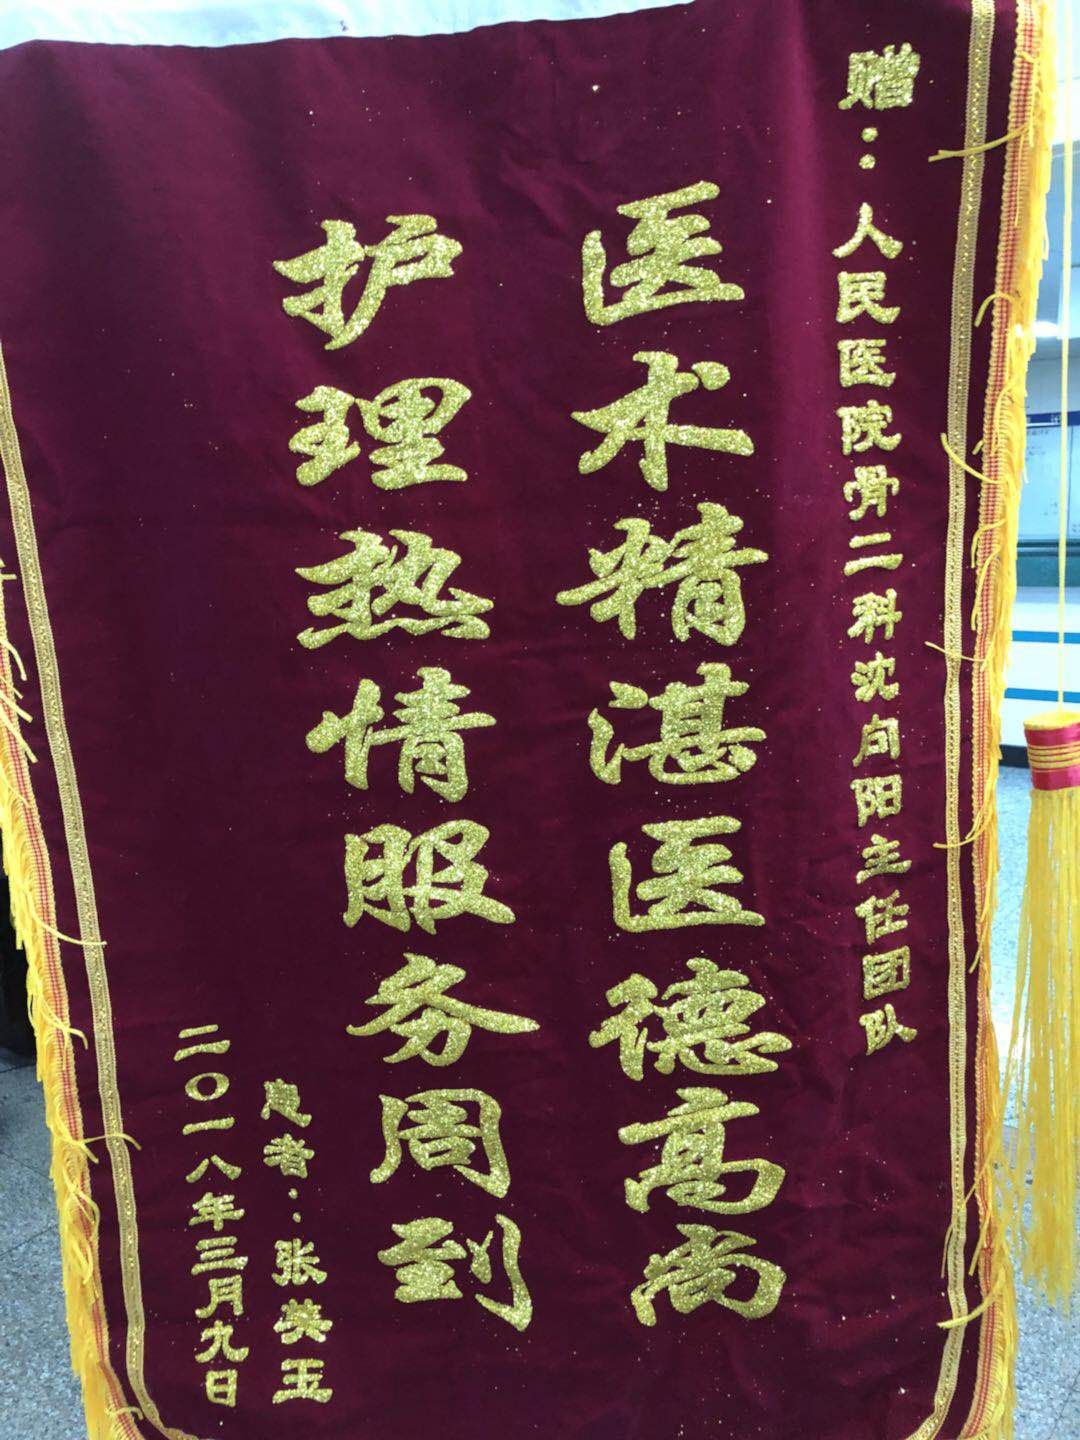 赠：人民医院骨二科沈向阳主任团队
医术精湛医德高尚
护理热情服务周到
患者：张英玉
二〇一八年三月九日